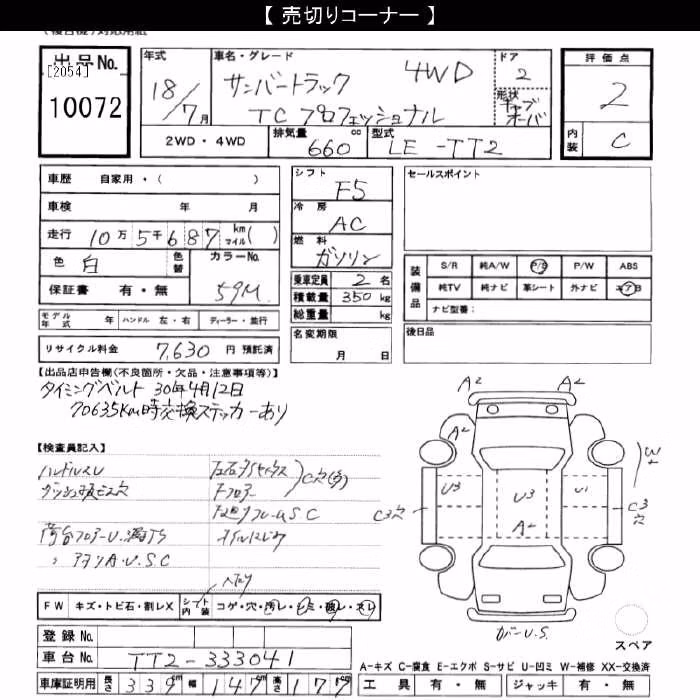 【 売切りコーナー 】
出品No.
[2054]
10072
年式
18/7月
車名・グレード
サンバートラック 4WD
TC プロフェッショナル
ドア
2
形状
キャブオーバ
評価点
2
内装
C
2WD・4WD
排気量
660
cc
型式
LE-TT2
車歴 自家用・( )
車検 年 月
走行 10万5千687 km マイル( )
色 白
色替
カラーNo.
59M
保証書 有・無
モデル年式 年 ハンドル 左・右 ディーラー・並行
リサイクル料金 7,630 円 預託済
シフト
F5
冷房
AC
燃料
ガソリン
乗車定員 2 名
積載量 350 kg
総重量 kg
名変期限
月 日
セールスポイント
装備品
S/R 純A/W P/S P/W ABS
純TV 純ナビ 革シート 外ナビ エアB
ナビ型番:
後日品
【出品店申告欄(不良箇所・欠品・注意事項等)】
タイミングベルト 30年4月12日
70635Km時交換ステッカーあり
【検査員記入】
ハンドルスレ
ダッシュ板ビス穴
荷台フロアーU.凹TS
〃 アオリA.U.S.C
Fフロアー
C穴
A2
A2
A2
W
U3
U3
U1
C3穴
C3穴
A2
カバーU.S.
スペア
FW キズ・トビ石・割レX
シート内装 コゲ・穴・汚レ・シミ・破レ・スレ
登録No.
車台No. TT2-333041
車庫証明用 長さ 339 cm 幅 147 cm 高さ 177 cm
A-キズ C-腐食 E-エクボ S-サビ U-凹ミ W-補修 XX-交換済
工具 有・無 ジャッキ 有・無